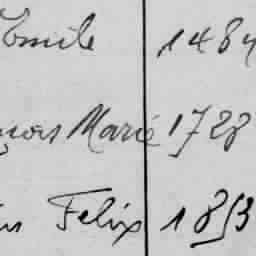 Emile 1484
çois Marie 1728
Felix 1853